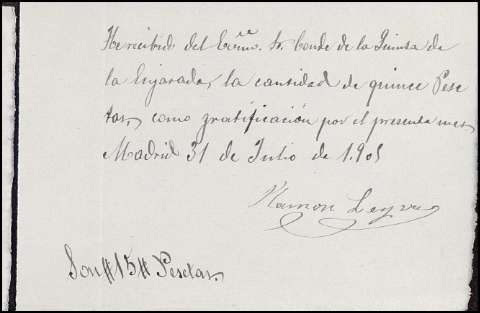 He recibido del Excmo. Sr. Conde de la Quinta de
la Enjarada, la cantidad de quince Pese
tas, como gratificación por el presente mes
Madrid 31 de Julio de 1.905
Ramon Leyva
Son #15# Pesetas.